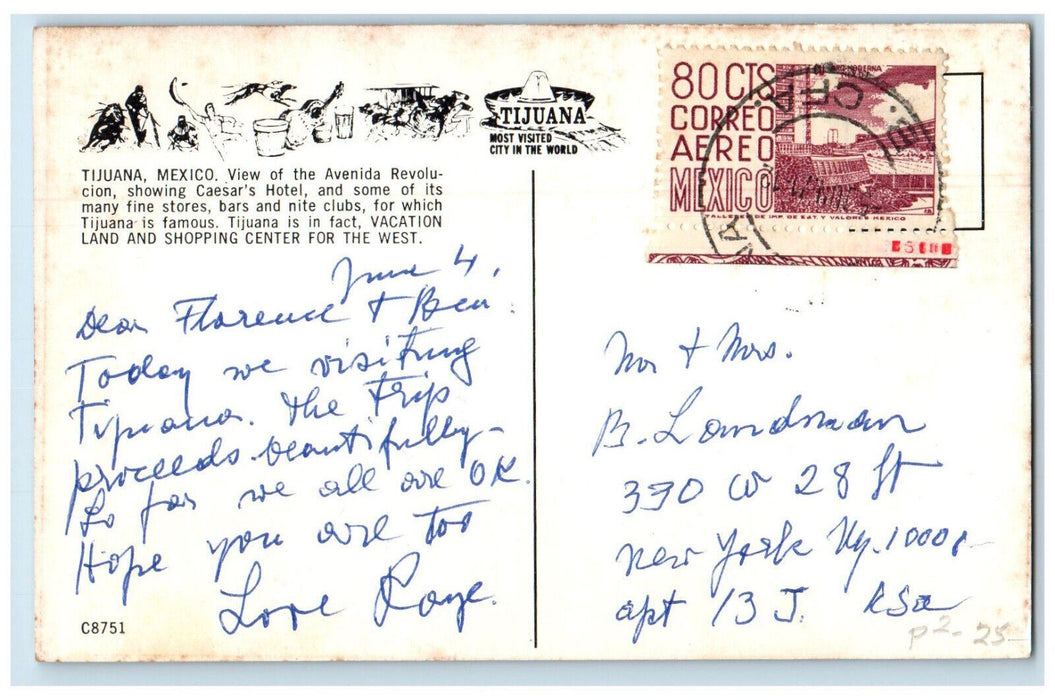 TIJUANA
MOST VISITED
CITY IN THE WORLD
TIJUANA, MEXICO. View of the Avenida Revolu-
cion, showing Caesar's Hotel, and some of its
many fine stores, bars and nite clubs, for which
Tijuana is famous. Tijuana is in fact, VACATION
LAND AND SHOPPING CENTER FOR THE WEST.
June 4,
Dear Florence + Ben
Today we visiting
Tijuana. The trip
proceeds beautifully-
So far we all are OK.
Hope you are too
Love Raye.
C8751
80 CTS
CORREO
AEREO
MEXICO
TALLERES DE IMP. DE EST. Y VALORES MEXICO
Mr + Mrs.
B. Landman
330 W 28 St
New York Ny. 10001
apt 13 J. USA
P2- 25-